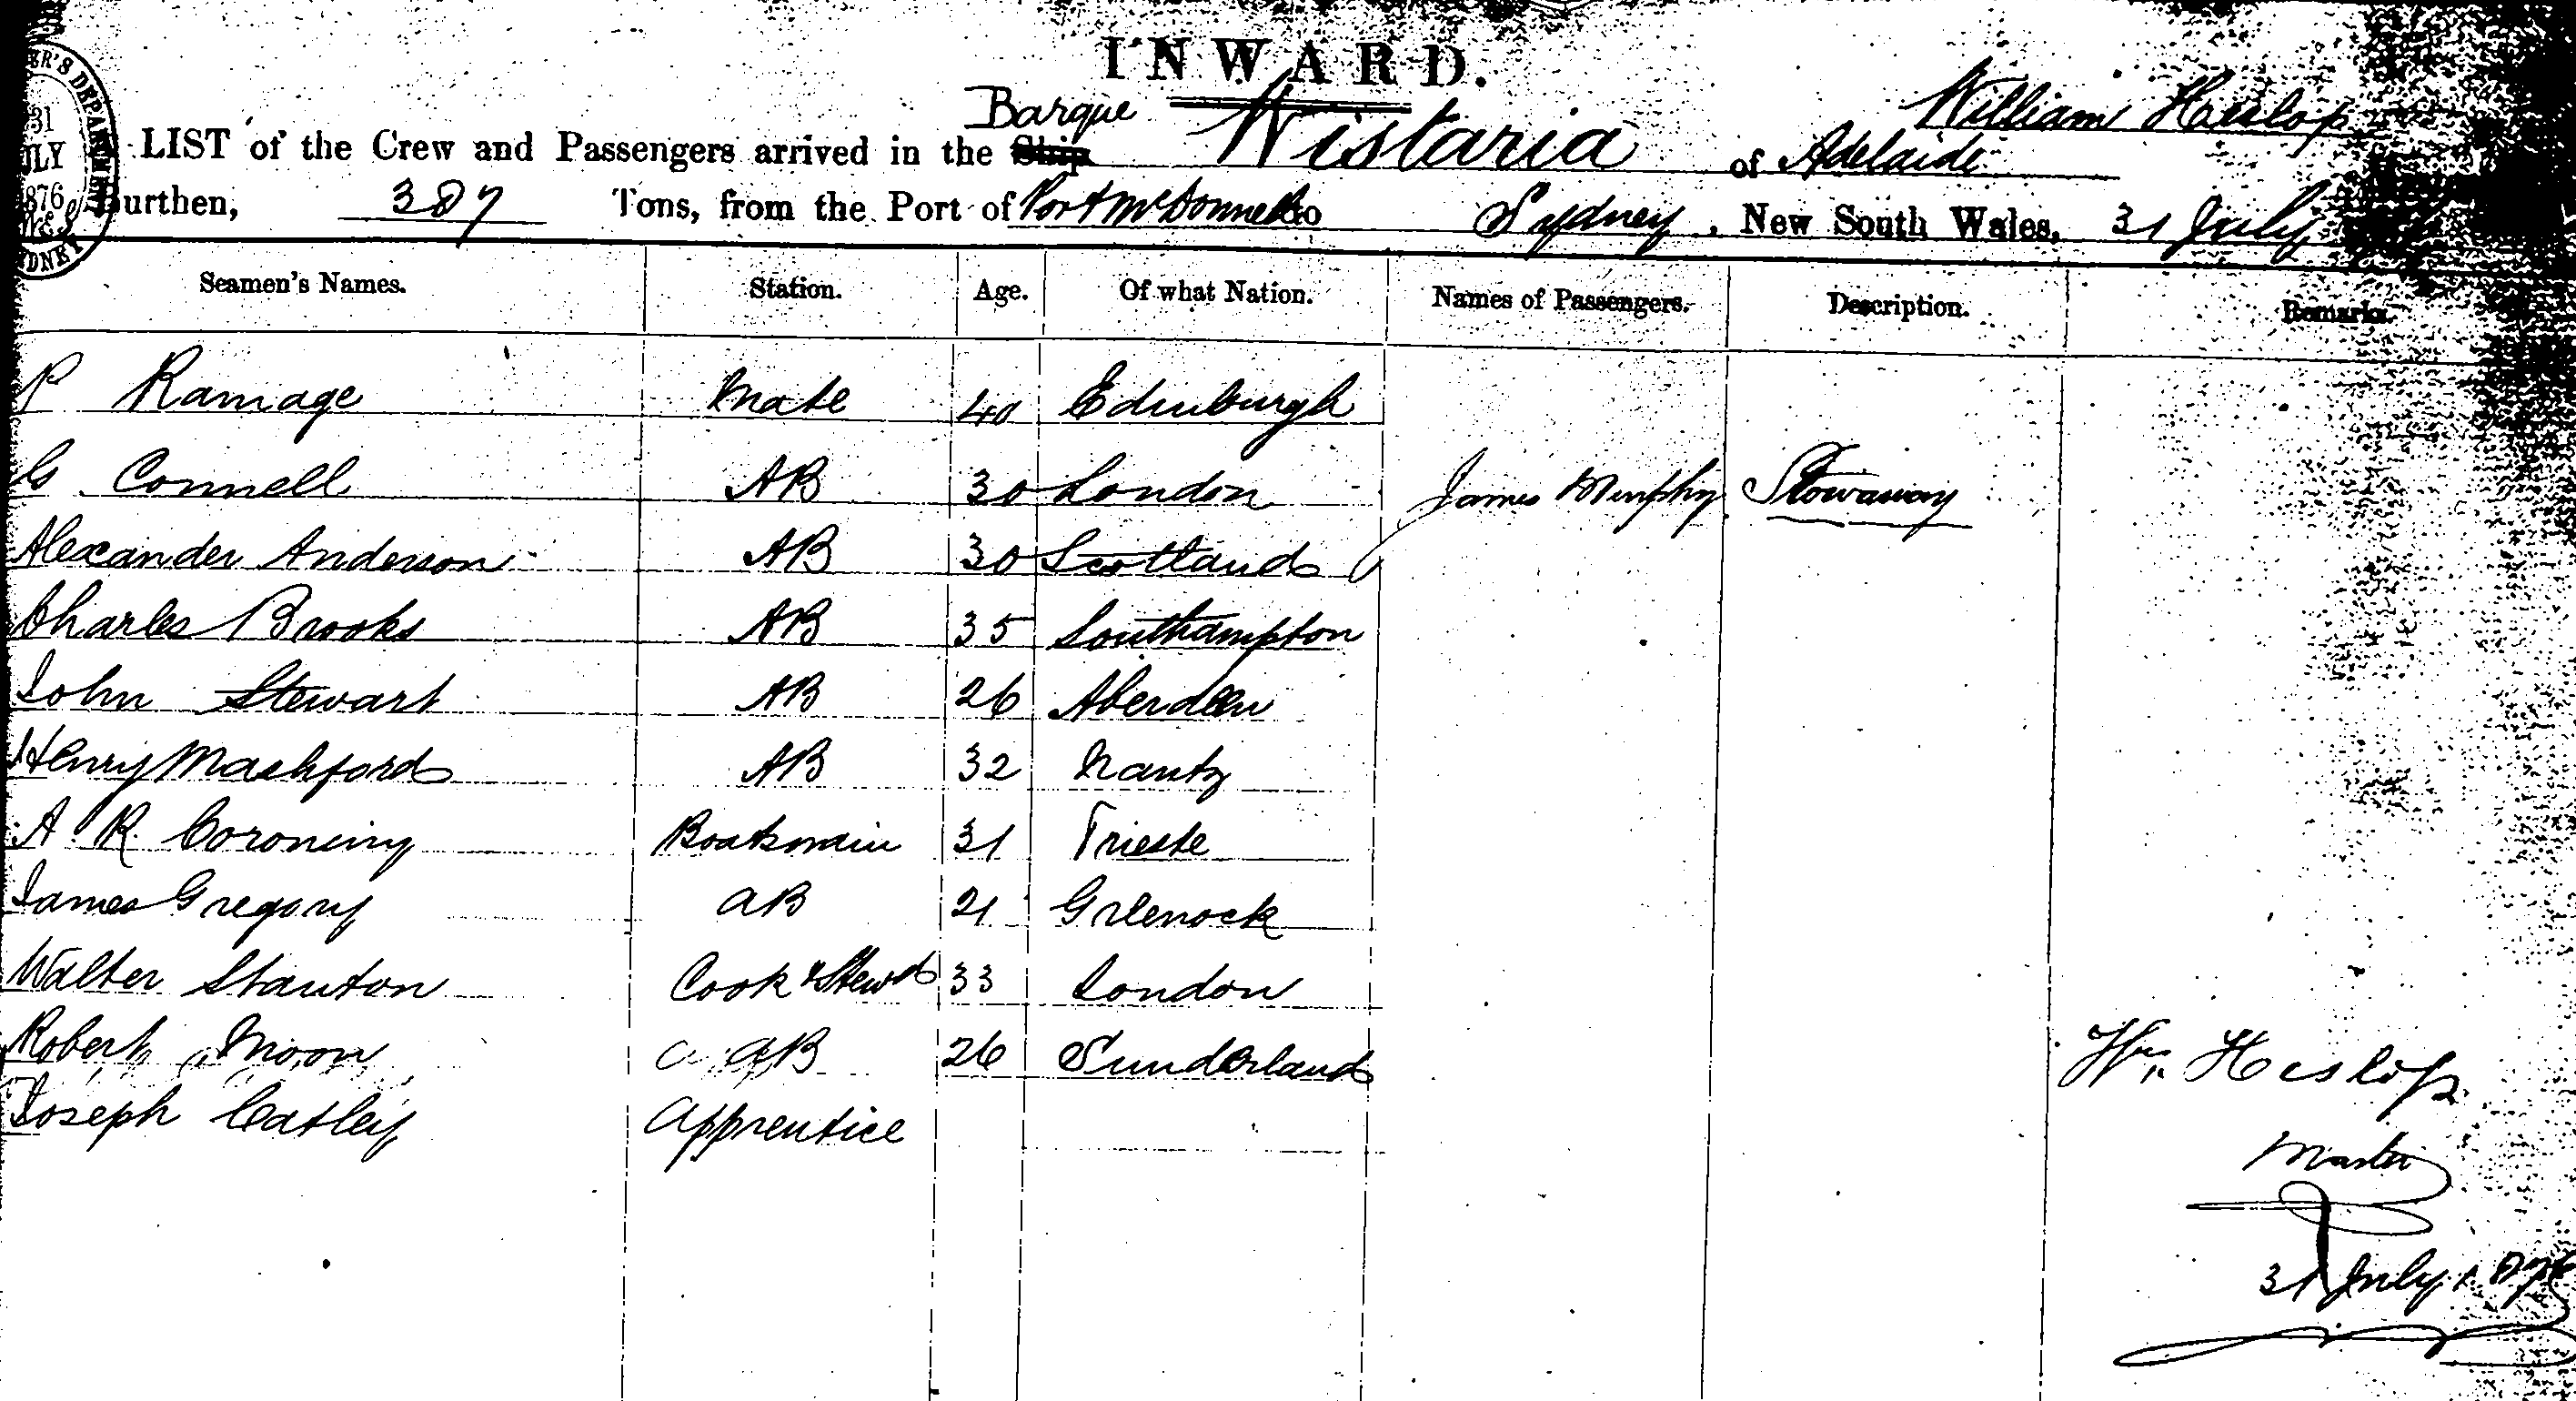 INWARD.
William Heslop
LIST of the Crew and Passengers arrived in the Ship Barque Wistaria of Adelaide
Burthen, 387 Tons, from the Port of Port McDonnell to Sydney, New South Wales, 31 July
31
JULY
1876
SYDNEY
Seamen's Names. Station. Age. Of what Nation. Names of Passengers. Description. Remarks.
P Ramage Mate 40 Edinburgh
G Connell AB 30 London James Murphy Stowaway
Alexander Anderson AB 30 Scotland
Charles Brooks AB 35 Southampton
John Stewart AB 26 Aberdeen
Henry Mashford AB 32 Nantz
A R Coroneiny Boatswain 31 Trieste
James Gregory AB 21 Greenock
Walter Stanton Cook & Stewd 33 London
Robert Moon AB 26 Sunderland
Joseph Catley Apprentice
Wm Heslop
Master
31 July 1876